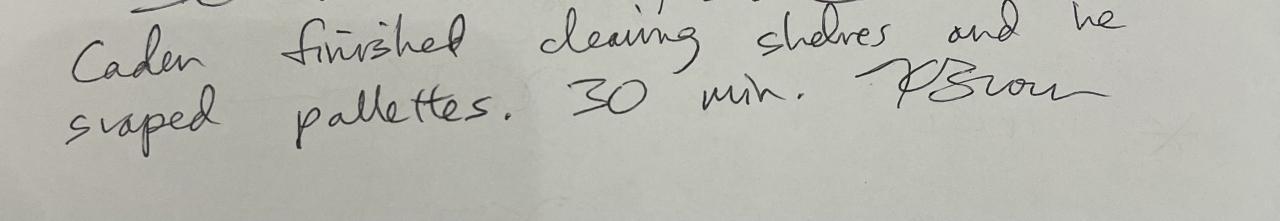 Caden finished cleaning shelves and he
scraped pallettes. 30 min. KBrown